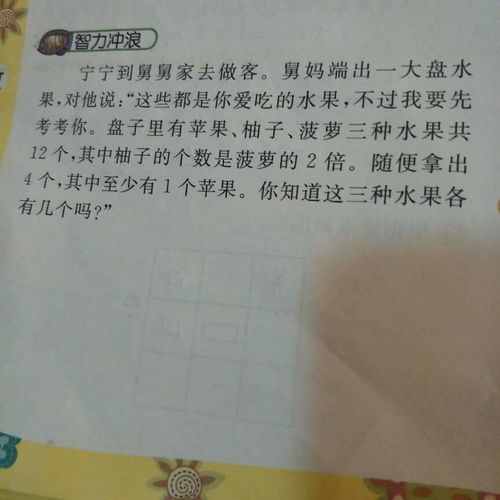 智力冲浪
宁宁到舅舅家去做客。舅妈端出一大盘水
果,对他说:“这些都是你爱吃的水果,不过我要先
考考你。盘子里有苹果、柚子、菠萝三种水果共
12个,其中柚子的个数是菠萝的2倍。随便拿出
4个,其中至少有1个苹果。你知道这三种水果各
有几个吗?”